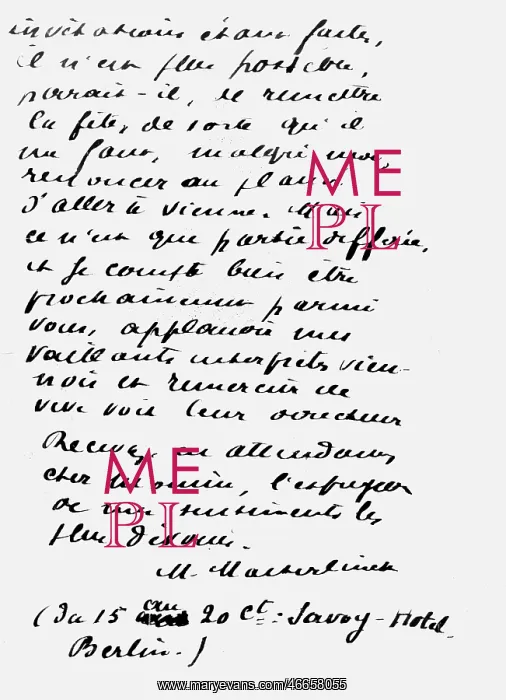 invitations étant faites,
il n'est plus possible,
paraît-il, de remettre
la fête, de sorte qu'il
me faut, malgré moi,
renoncer au plaisir
d'aller à Vienne. Mais
ce n'est que partie différée,
et je compte bien être
prochainement parmi
vous, applaudir mes
vaillants interprètes vien-
nois et remercier de
vive voix leur directeur
Recevez, en attendant,
cher
de mes sentiments les
plus
M. Maeterlinck
(Du 15 au 20 ct: Savoy-Hotel
Berlin.)
ME
PL
ME
PL
www.maryevans.com/46658055